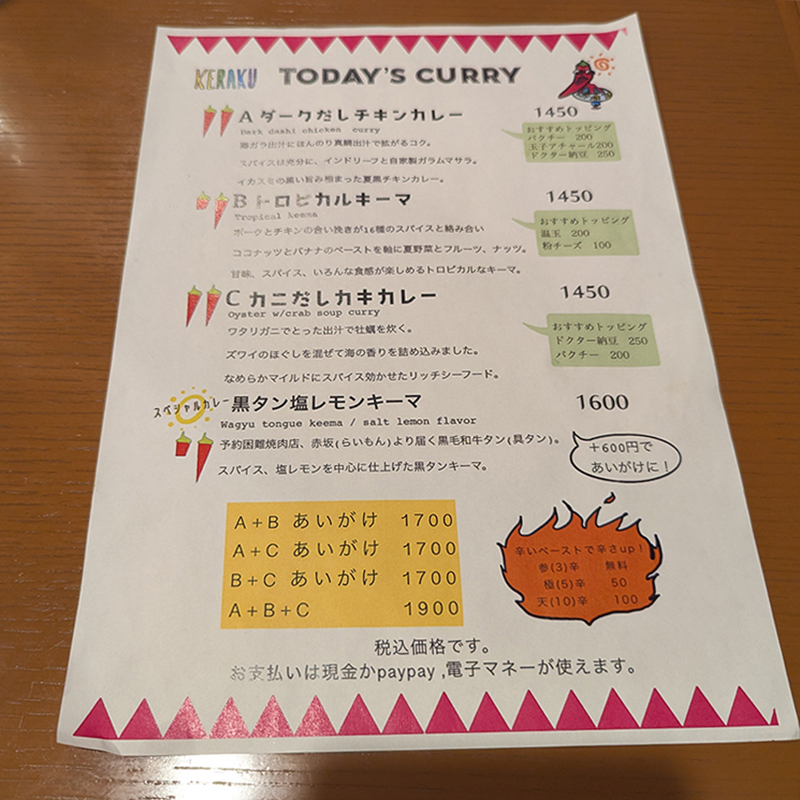 KERAKU TODAY'S CURRY
A ダークだしチキンカレー 1450
Dark dashi chicken curry
鶏ガラ出汁にほんのり真鯛出汁で拡がるコク。
スパイスは充分に、インドリーフと自家製ガラムマサラ。
イカスミの黒い旨み相まった夏黒チキンカレー。
おすすめトッピング
パクチー 200
玉子アチャール200
ドクター納豆 250
B トロピカルキーマ 1450
Tropical keema
ポークとチキンの合い挽きが16種のスパイスと絡み合い
ココナッツとバナナのペーストを軸に夏野菜とフルーツ、ナッツ。
甘味、スパイス、いろんな食感が楽しめるトロピカルなキーマ。
おすすめトッピング
温玉 200
粉チーズ 100
C カニだしカキカレー 1450
Oyster w/crab soup curry
ワタリガニでとった出汁で牡蠣を炊く。
ズワイのほぐしを混ぜて海の香りを詰め込みました。
なめらかマイルドにスパイス効かせたリッチシーフード。
おすすめトッピング
ドクター納豆 250
パクチー 200
スペシャルカレー 黒タン塩レモンキーマ 1600
Wagyu tongue keema / salt lemon flavor
予約困難焼肉店、赤坂(らいもん)より届く黒毛和牛タン(具タン)。
スパイス、塩レモンを中心に仕上げた黒タンキーマ。
＋600円で
あいがけに！
A+B あいがけ 1700
A+C あいがけ 1700
B+C あいがけ 1700
A+B+C 1900
辛いペーストで辛さup！
参(3)辛 無料
極(5)辛 50
天(10)辛 100
税込価格です。
お支払いは現金かpaypay ,電子マネーが使えます。